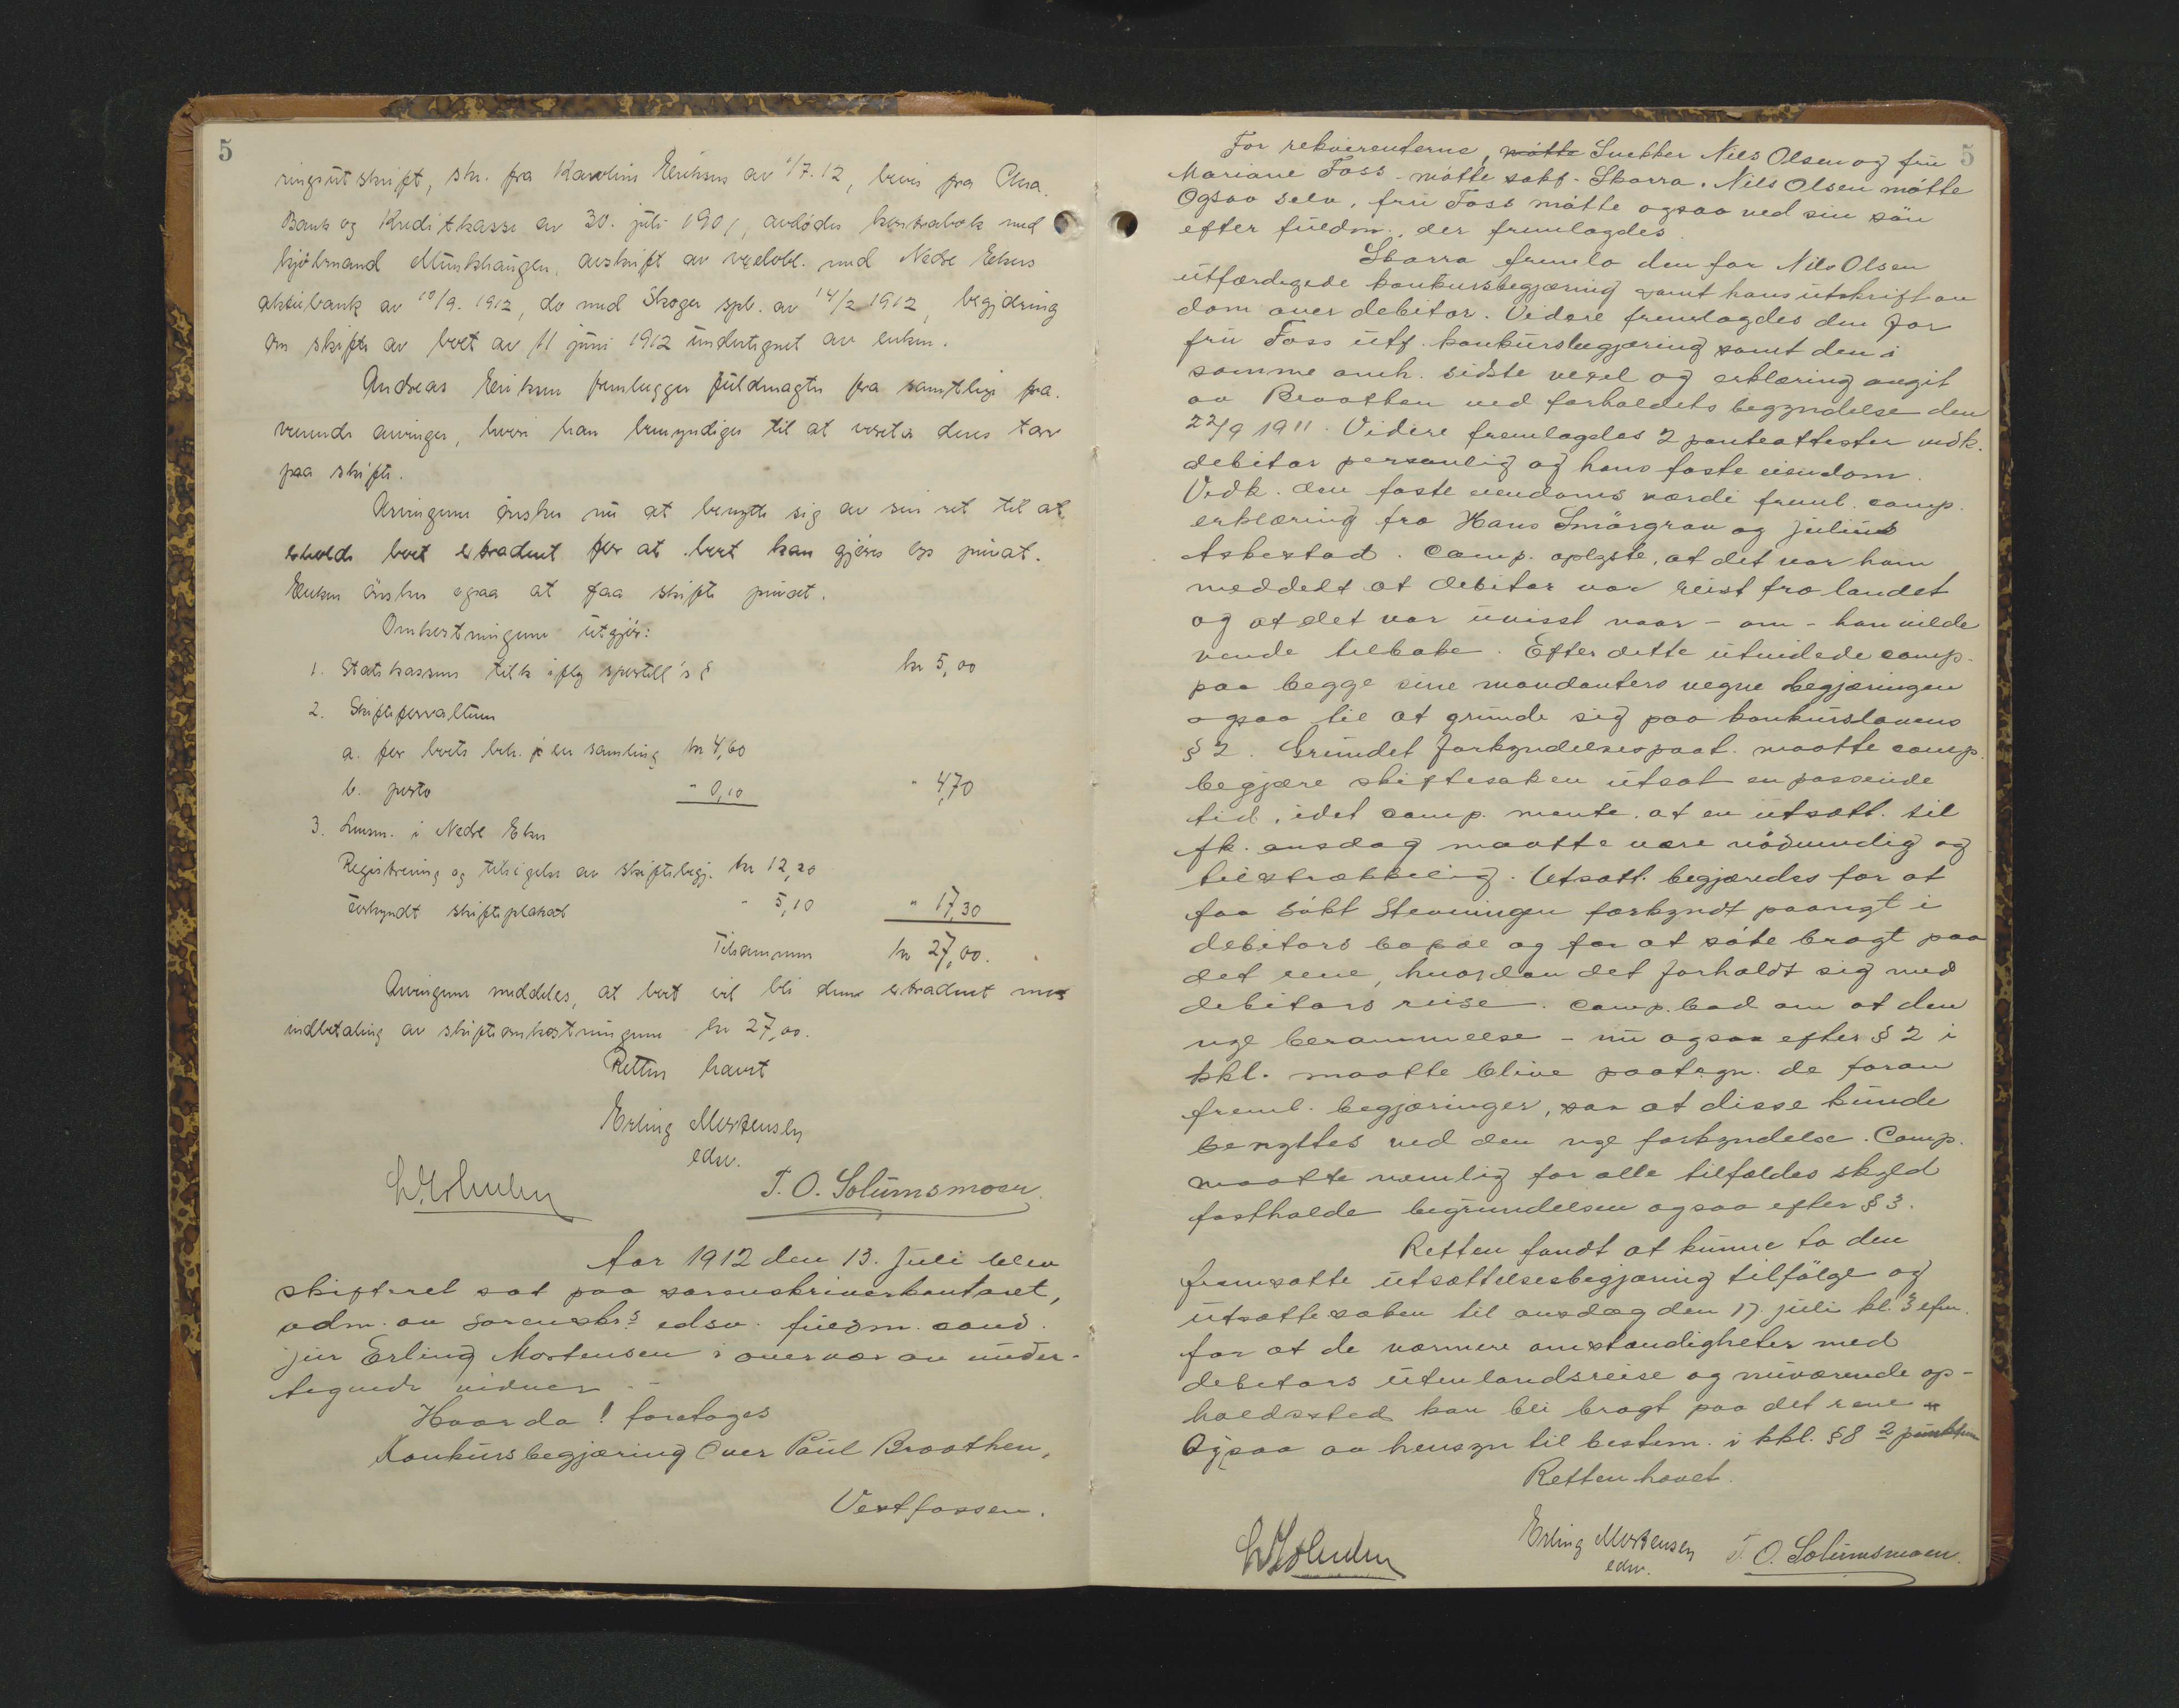 5
ringsutskrift, skr. fra Karoline Eriksen av 1/7.12, bevis fra Chra.
Bank og Kreditkasse av 30. juli 1901, avdödes kontrabok med
kjöbmand Munkhaugen, avskrift av vexelobl. med Nedre Ekers
aktiebank av 10/9. 1912, do med Skoger spb. av 14/2 1912, begjæring
om skifte av boet av 11 juni 1912 undertegnet av enken.
Andreas Eriksen fremlegger fuldmagter fra samtlige fra-
værende arvinger, hvori han bemyndiges til at vareta deres tarv
paa skiftet.
Arvingerne önsker nu at benytte sig av sin ret til at
erholde boet extradert for at boet kan gjöres op privat.
Enken önsker ogsaa at faa skifte privat.
Omkostningerne utgjör:
1. Statskassen tilk iflg sportell's § kr 5,00
2. Skifteforvalteren
a. for boets beh. i en samling kr 4,60
b. porto " 0,10 " 4,70
3. Lensm. i Nedre Eker
Registrering og tilsigelse av skiftebegj. kr 12,20
forkyndt skifteplakat " 5,10 " 17,30
Tilsammen kr 27,00.
Arvingerne meddeles, at boet vil bli dem extradert mot
indbetaling av skifteomkostningerne kr 27,00.
Retten hævet
Erling Mortensen
edsv.
T. O. Solumsmoen.
Aar 1912 den 13. juli blev
skifteret sat paa sorenskriverkontoret,
adm. av sorenskrs edsv. fuldm. cand.
jur Erling Mortensen i overvær av under-
tegnede vidner
Hvorda! foretoges
Konkursbegjæring over Paul Braathen,
Vestfossen.
5
For rekvirenterne, mötte Snekker Nils Olsen og fru
Mariane Foss mötte sakf. Skarra. Nils Olsen mötte
Ogsaa selv, fru Foss mötte ogsaa ved sin sön
efter fuldm., der fremlagdes.
Skarra fremla den for Nils Olsen
utfærdigede konkursbegjæring samt hans utskrift av
dom over debitor. Videre fremlagdes den for
fru Foss utf. konkursbegjæring samt den i
samme omh. sidste vexel og erklæring avgit
av Braathen ved forholdets begyndelse den
22/9 1911. Videre fremlagdes 2 panteattester vedk.
debitor personlig og hans faste eiendom.
Vedk. den faste eiendoms værdi freml. comp.
erklæring fra Hans Smörgrav og Julius
Askestad. Comp. oplyste, at det var ham
meddelt at debitor var reist fra landet
og at det var uvisst naar - om - han vilde
vende tilbake. Efter dette utvidede comp.
paa begge sine mandanters vegne begjæringen
ogsaa til at grunde sig paa konkurslovens
§ 2. Grundet forkyndelsespaat. maatte comp.
begjære skiftesaken utsat en passende
tid, idet comp. mente, at en utsætt. til
fk. onsdag maatte være nödvendig og
tilstrækkelig. Utsætt. begjæredes for at
faa sökt Stevningen forkyndt paanyt i
debitors bopæl og for at söke bragt paa
det rene, hvordan det forholdt sig med
debitors reise. Comp. bad om at den
nye berammelse - nu ogsaa efter § 2 i
kkl. maatte blive paategn. de foran
freml. begjæringer, saa at disse kunde
benyttes ved den nye forkyndelse. Comp.
maatte nemlig for alle tilfældes skyld
fastholde begrundelsen ogsaa efter § 3.
Retten fandt at kunne ta den
fremsatte utsættelsesbegjæring tilfölge og
utsatte saken til onsdag den 17. juli kl. 3 efm.
for at de nærmere omstændigheter med
debitors utenlandsreise og nuværende op-
holdssted kan bli bragt paa det rene
Ogsaa av hensyn til bestem. i kkl. § 8 2 punktum
Retten hævet.
Erling Mortensen
edsv.
T. O. Solumsmoen.